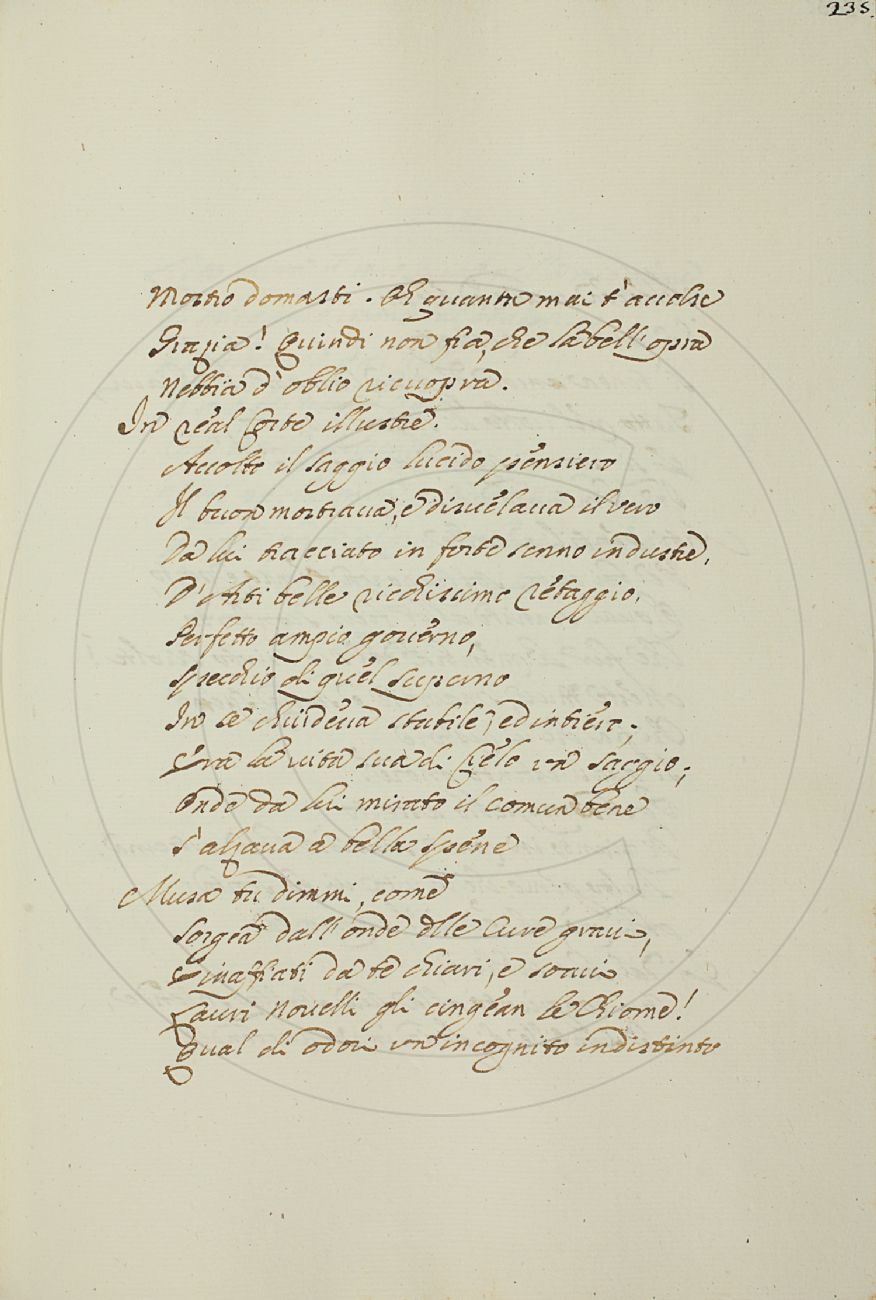 235.
Mostro domasti. Oh quante mai t'accolse
Grazia! Quindi non fia, che la bell'opra
Nebbia d'oblio ricuopra.
In real Corte illustre.
Accolto il saggio lucido pensiero
Il buon mostrava, e disvelava il vero
Da lui tracciato in forte senno industre.
D'Arti belle ricchissimo retaggio,
Perfetto ampio governo,
Specchio di quel superno
In se chiudeva stabile, ed intiero;
Era la vita sua di Cielo un saggio;
Onde da lui mirato il comun bene
S'alzava a bella spene
Musa tu dimmi, come
Sorgea dall'onde dlle Cure gravi,
E inaffiati da te chiari, e soavi
Lauri Novelli gli cingean le Chiome!
Qual di odori un incognito indistinto